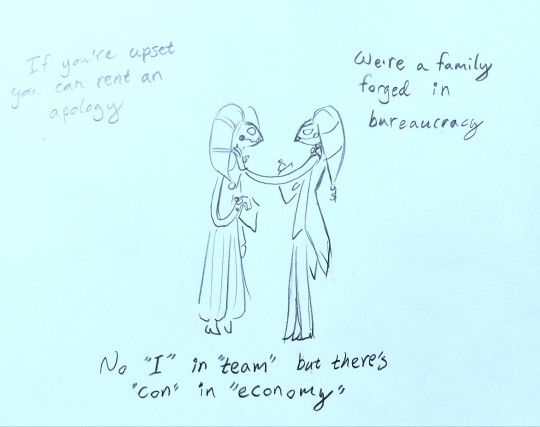 If you're upset
you can rent an
apology
We're a family
forged in
bureaucracy
No "I" in "team" but there's
"con" in "economy"